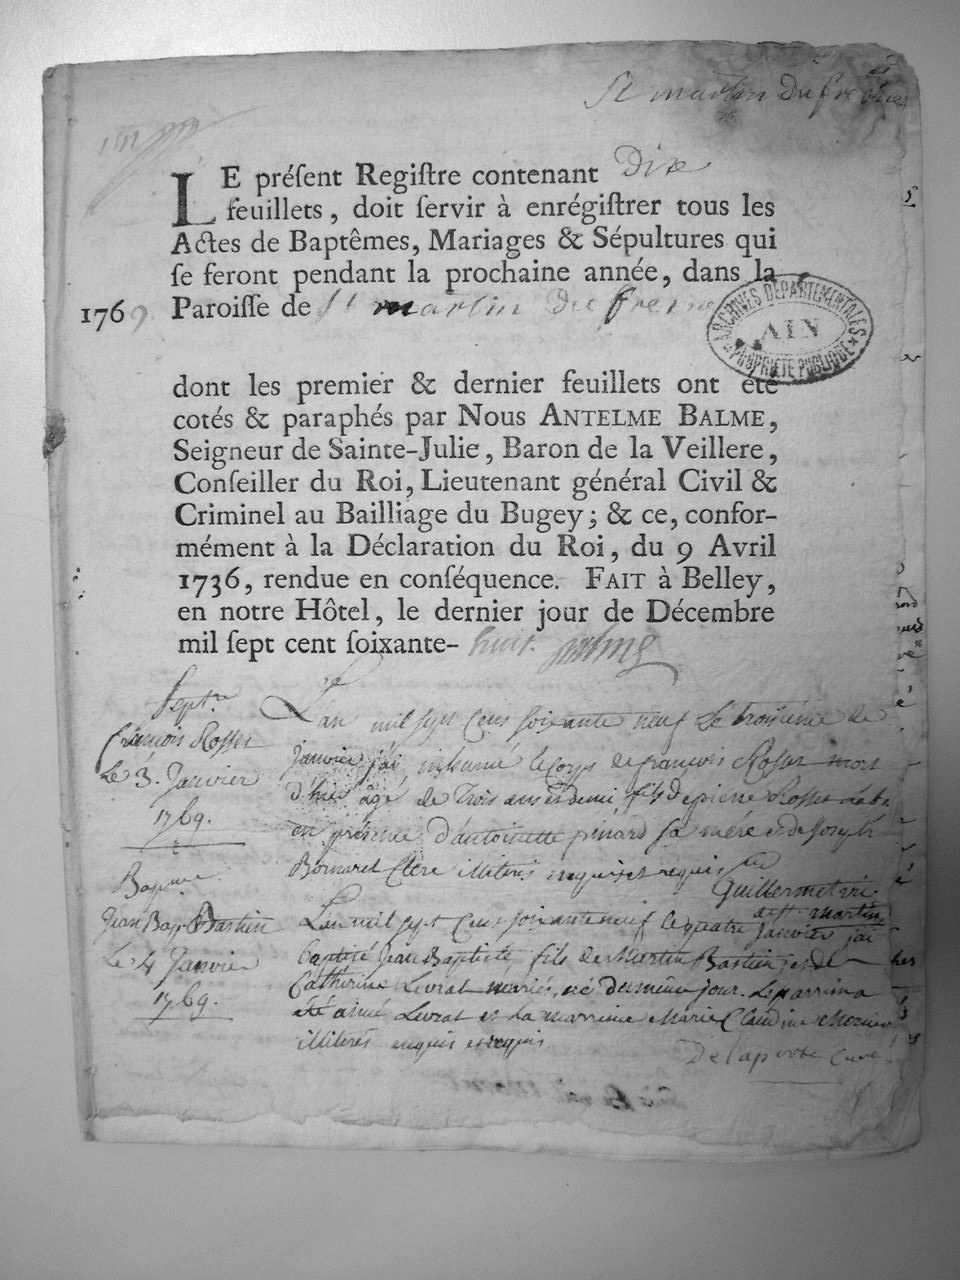 St martin Du fresne
LE préſent Regiſtre contenant Dix
feuillets, doit ſervir à enrégiſtrer tous les
Actes de Baptêmes, Mariages & Sépultures qui
ſe feront pendant la prochaine année, dans la
1769 Paroiſſe de St martin Du fresne
ARCHIVES DÉPARTEMENTALES
AIN
PROPRIÉTÉ PUBLIQUE
dont les premier & dernier feuillets ont été
cotés & paraphés par Nous ANTELME BALME,
Seigneur de Sainte-Julie, Baron de la Veillere,
Conſeiller du Roi, Lieutenant général Civil &
Criminel au Bailliage du Bugey; & ce, confor-
mément à la Déclaration du Roi, du 9 Avril
1736, rendue en conſéquence. FAIT à Belley,
en notre Hôtel, le dernier jour de Décembre
mil ſept cent ſoixante- huit.
Sept.re
françois Rosset
Le 3. Janvier
1769.
L'an mil sept cens soixante neuf Le troisième de
janvier j'ai inhumé le corps de françois Rosset mort
d'hier âgé de trois ans et demi fils de pierre Rosset
en présence d'antoinette pinard sa mére et de Joseph
Bornarel Clerc illiterés enquis et requis
Guillermet vic
Baptême
Jean Bap. Bastien
Le 4 Janvier
1769.
L'an mil sept cens soixante neuf le quatre janvier j'ai
baptisé Jean Baptiste fils de Martin Bastien et de
Catherine Levrat mariés, né du même jour. Le parrin a
été aimé Levrat et la marrine Marie Claudine
illiterés enquis et requis
Delaporte Curé